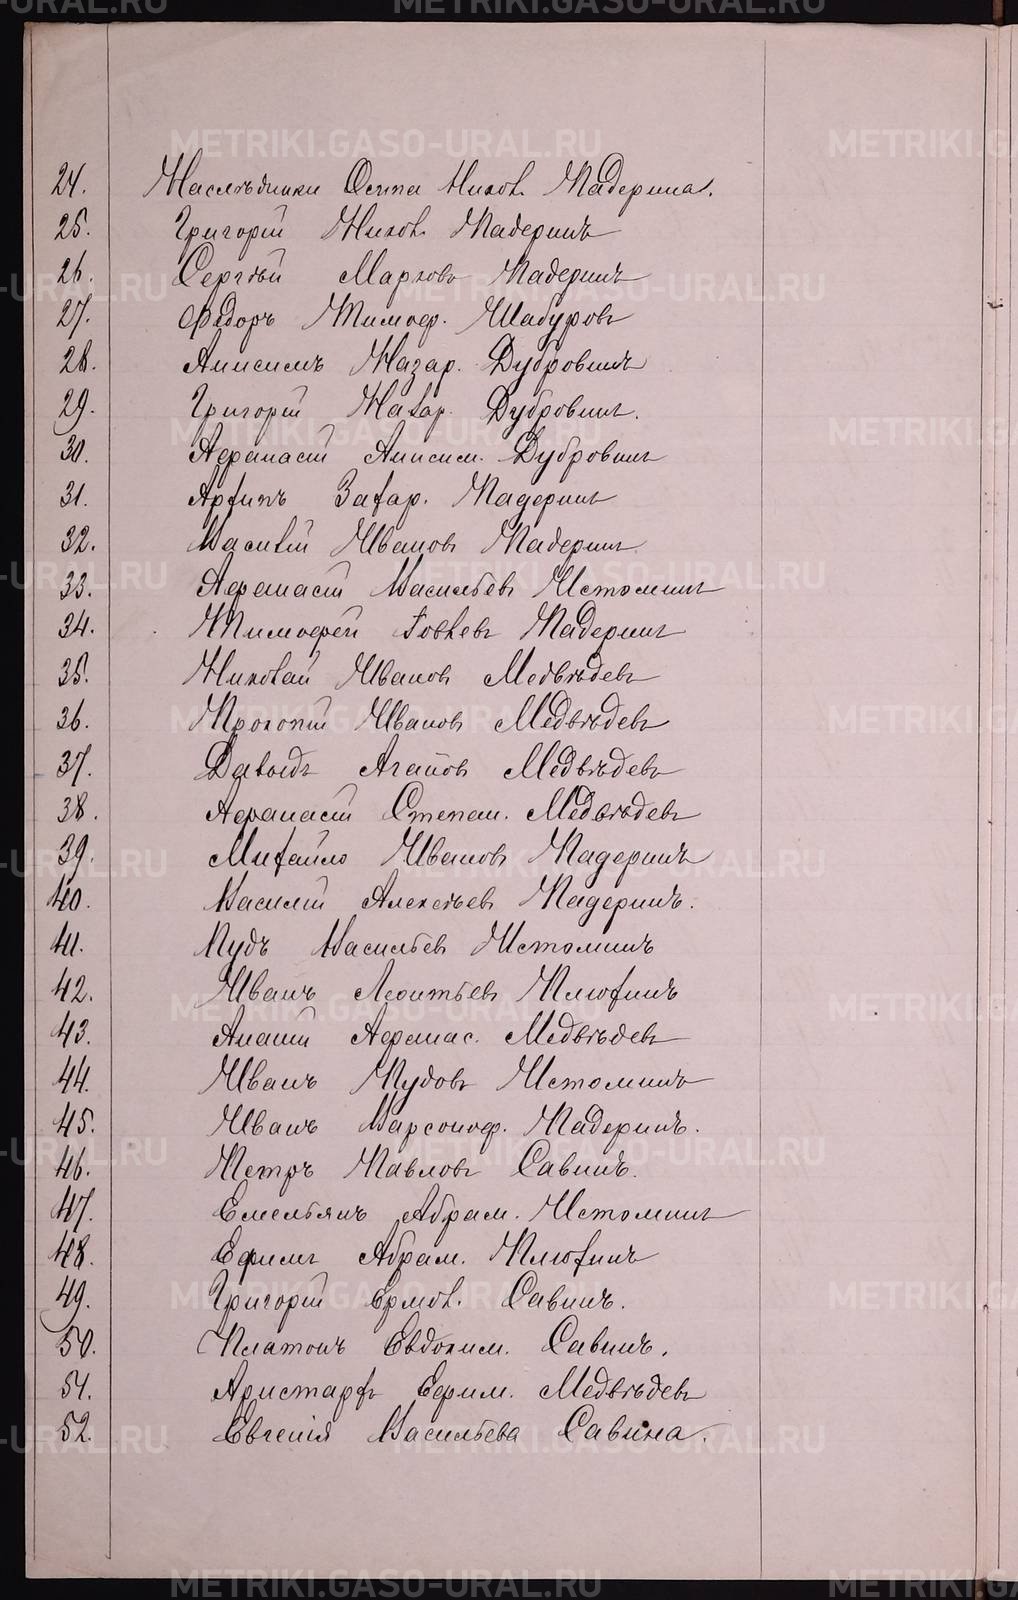 24. Наслѣдники Осипа Никол. Мадерина.
25. Григорій Никол. Мадеринъ
26. Сергѣй Марковъ Мадеринъ
27. Федоръ Тимоф. Шабуровъ
28. Анисимъ Назар. Дубровинъ
29. Григорій Назар. Дубровинъ.
30. Афанасій Анисим. Дубровинъ
31. Архипъ Захар. Мадеринъ
32. Василій Ивановъ Мадеринъ
33. Афанасій Васильевъ Истоминъ
34. Тимофей Іовлевъ Мадеринъ
35. Николай Ивановъ Медвѣдевъ
36. Прокопій Ивановъ Медвѣдевъ
37. Давыдъ Агаповъ Медвѣдевъ
38. Афанасій Степан. Медвѣдевъ
39. Михайло Ивановъ Мадеринъ
40. Василій Алексѣевъ Мадеринъ.
41. Пудъ Васильевъ Истоминъ
42. Иванъ Леонтьевъ Плюхинъ
43. Ананій Афанас. Медвѣдевъ
44. Иванъ Пудовъ Истоминъ
45. Иванъ Варсоноф. Мадеринъ.
46. Петръ Павловъ Савинъ.
47. Емельянъ Абрам. Истоминъ
48. Ефимъ Абрам. Плюхинъ
49. Григорій Ермол. Савинъ.
50. Платонъ Евдоким. Савинъ.
51. Аристархъ Ефим. Медвѣдевъ
52. Евгенія Васильева Савина.
METRIKI.GASO-URAL.RU